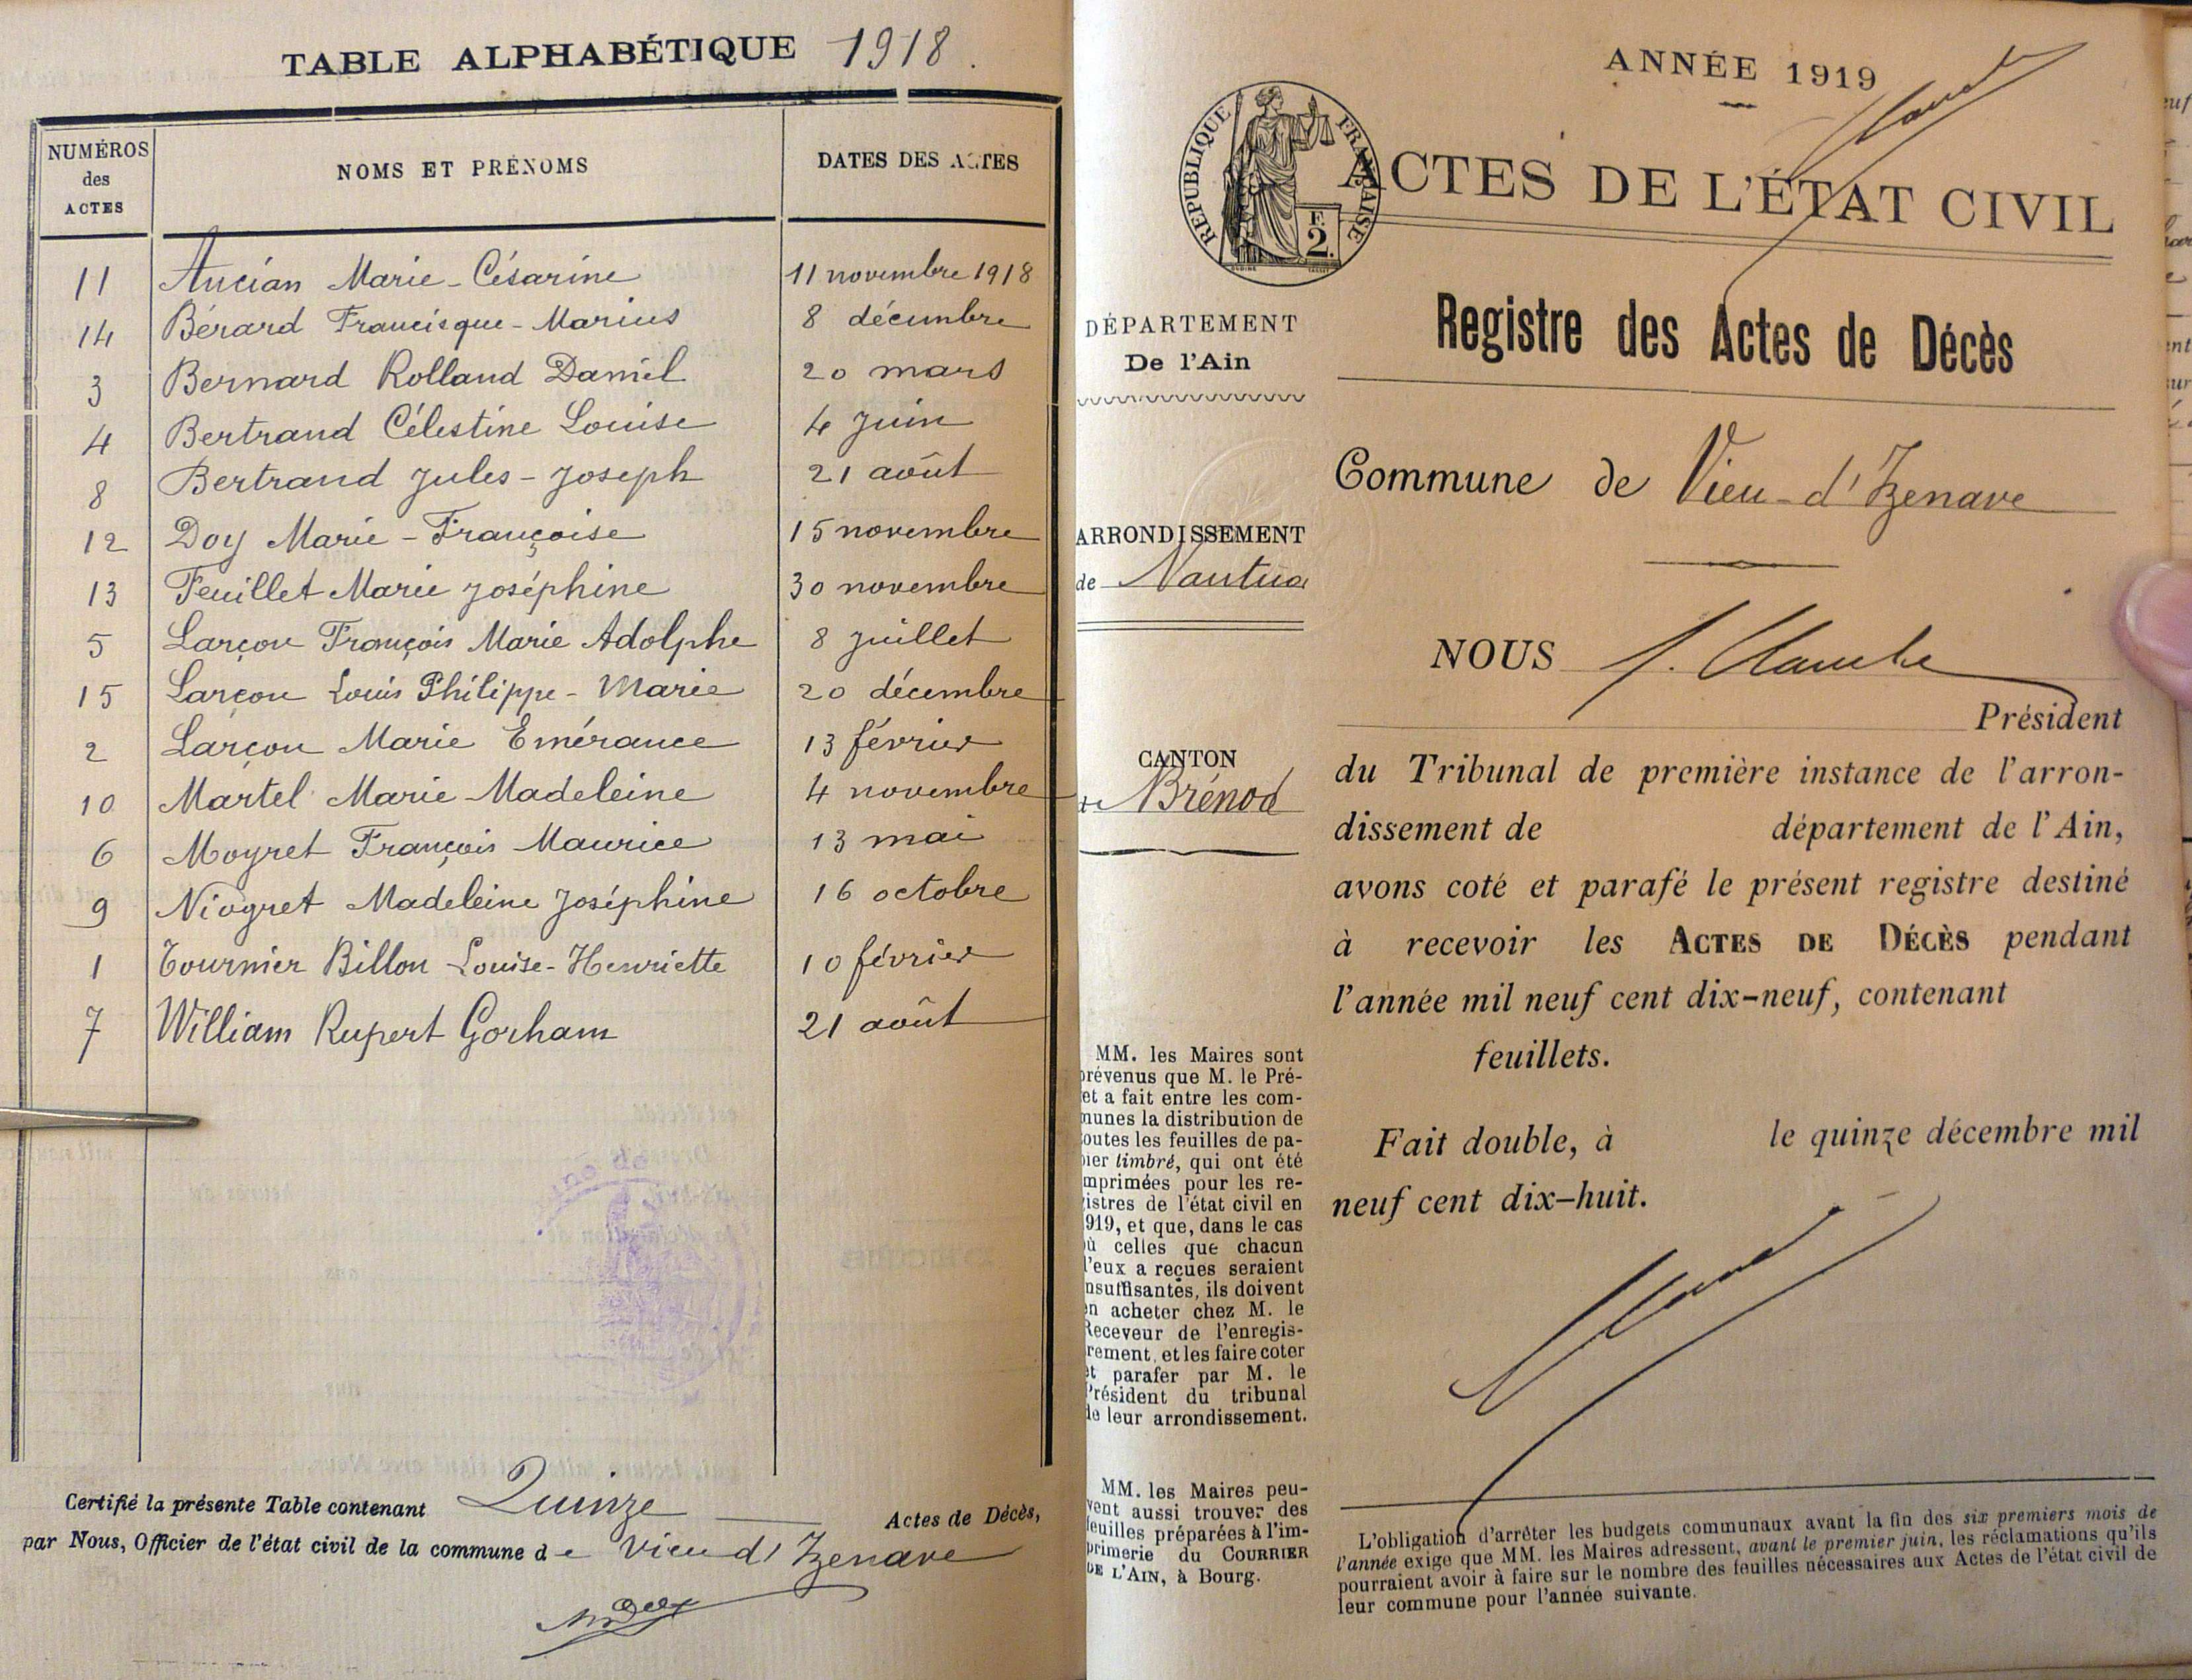 TABLE ALPHABÉTIQUE 1918.
NUMÉROS des ACTES
NOMS ET PRÉNOMS
DATES DES ACTES
11 Ancian Marie-Césarine 11 novembre 1918
14 Bérard Francisque-Marius 8 décembre
3 Bernard Rolland Daniel 20 mars
4 Bertrand Célestine Louise 4 juin
8 Bertrand Jules-Joseph 21 août
12 Doy Marie-Françoise 15 novembre
13 Feuillet Marie Joséphine 30 novembre
5 Larçon François Marie Adolphe 8 juillet
15 Larçon Louis Philippe-Marie 20 décembre
2 Larçon Marie Emérance 13 février
10 Martel Marie-Madeleine 4 novembre
6 Moyret François Maurice 13 mai
9 Niogret Madeleine Joséphine 16 octobre
1 Tournier Billon Louise-Henriette 10 février
7 William Rupert Gorham 21 août
Certifié la présente Table contenant Quinze Actes de Décès,
par Nous, Officier de l'état civil de la commune de Vieu d'Izenave
ANNÉE 1919
RÉPUBLIQUE FRANÇAISE
F. 2.
ACTES DE L'ÉTAT CIVIL
Registre des Actes de Décès
DÉPARTEMENT
De l'Ain
Commune de Vieu-d'Izenave
ARRONDISSEMENT
de Nantua
NOUS
Président
CANTON
de Brénod
du Tribunal de première instance de l'arron-
dissement de département de l'Ain,
avons coté et parafé le présent registre destiné
à recevoir les ACTES DE DÉCÈS pendant
l'année mil neuf cent dix-neuf, contenant
feuillets.
Fait double, à le quinze décembre mil
neuf cent dix-huit.
MM. les Maires sont
prévenus que M. le Pré-
et a fait entre les com-
munes la distribution de
outes les feuilles de pa-
pier timbré, qui ont été
imprimées pour les re-
gistres de l'état civil en
1919, et que, dans le cas
où celles que chacun
d'eux a reçues seraient
insuffisantes, ils doivent
en acheter chez M. le
Receveur de l'enregis-
rement, et les faire coter
et parafer par M. le
Président du tribunal
de leur arrondissement.
MM. les Maires peu-
vent aussi trouver des
feuilles préparées à l'im-
primerie du COURRIER
DE L'AIN, à Bourg.
L'obligation d'arrêter les budgets communaux avant la fin des six premiers mois de
l'année exige que MM. les Maires adressent, avant le premier juin, les réclamations qu'ils
pourraient avoir à faire sur le nombre des feuilles nécessaires aux Actes de l'état civil de
leur commune pour l'année suivante.